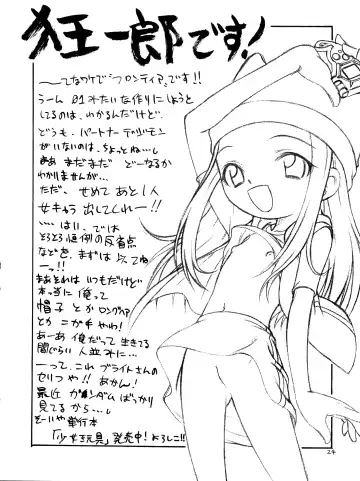 狂一郎です!
〜てなわけで「フロンティア」です!!
うーむ 01みたいな作りにしようと
してるのは、わかるんだけど
どうも、パートナーデジモン
がいないのは、ちょっとね…し
まぁ まだまだ どーなるか
わかりませんが…
ただ、せめてあと1人
女キャラ 出してくれー!!
…はい、では
恒例の反省点
など を、まずは
ーっ!!
まあそれは いつもだけど
本っ当に 俺って
帽子 とか ロングヘア
とか ニガテ やわ!
あーあ 俺だって 生きてる
間ぐらい 人並みに…
ーって、これ ブライトさんの
セリフや!! あかん!
最近 ガンダム ばっかり
見てる から…し
そーいや 単行本
「少女玩具」発売中! よろしこ!!
24